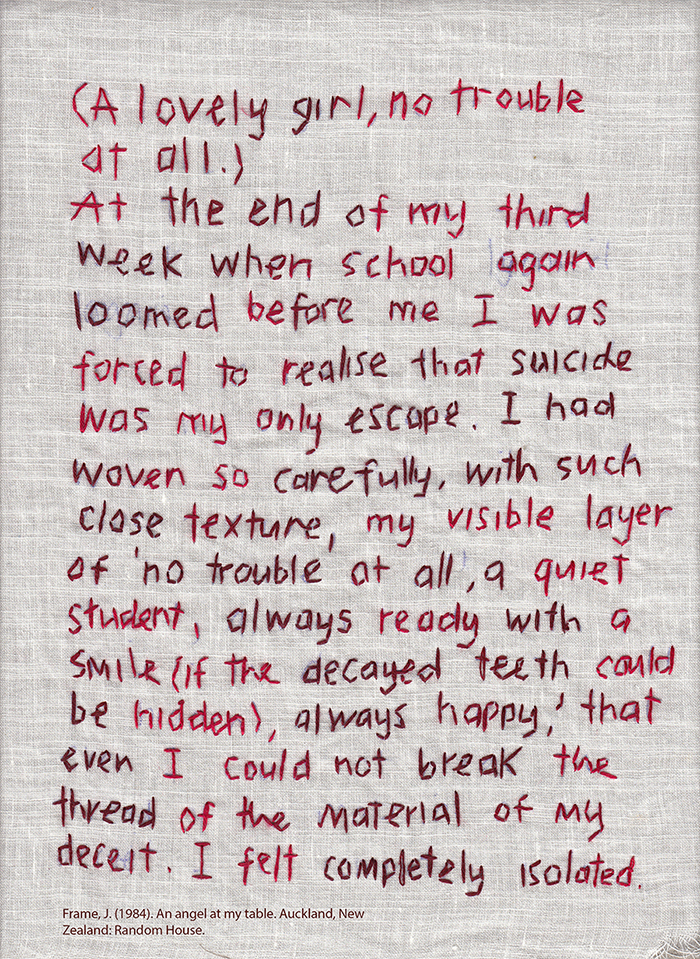 (A lovely girl, no trouble
at all.)
At the end of my third
week when school again
loomed before me I was
forced to realise that suicide
was my only escape. I had
woven so carefully, with such
close texture, my visible layer
of 'no trouble at all', a quiet
student, always ready with a
smile (if the decayed teeth could
be hidden), always happy,' that
even I could not break the
thread of the material of my
deceit. I felt completely isolated.
Frame, J. (1984). An angel at my table. Auckland, New
Zealand: Random House.